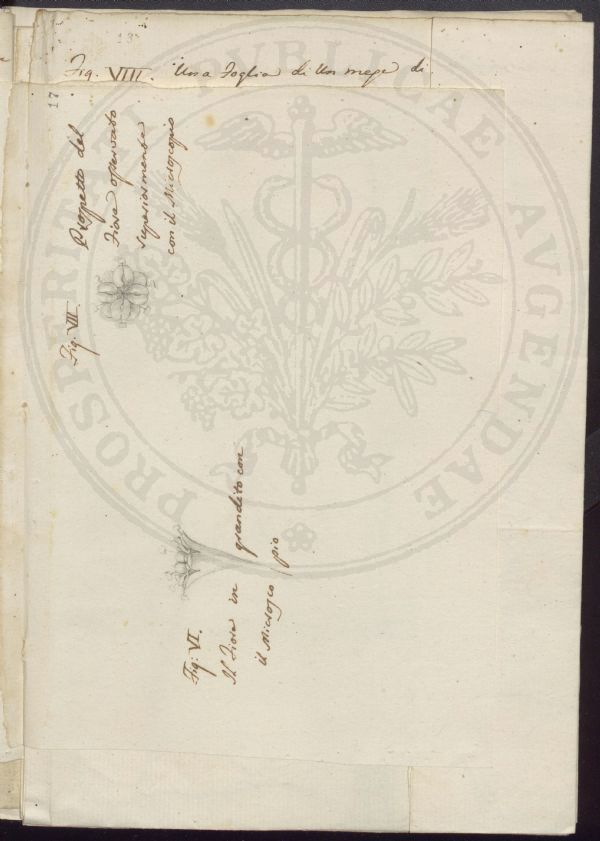 13
Fig. VIII. Una Foglia di Un mese di
17
Fig. VII.
Prospetto del
Fiore osservato
superiormente
con il Microscopio
Fig: VI.
Il Fiore in grandito con
il Microsco pio
PROSPERITATI PVBLICAE AVGENDAE